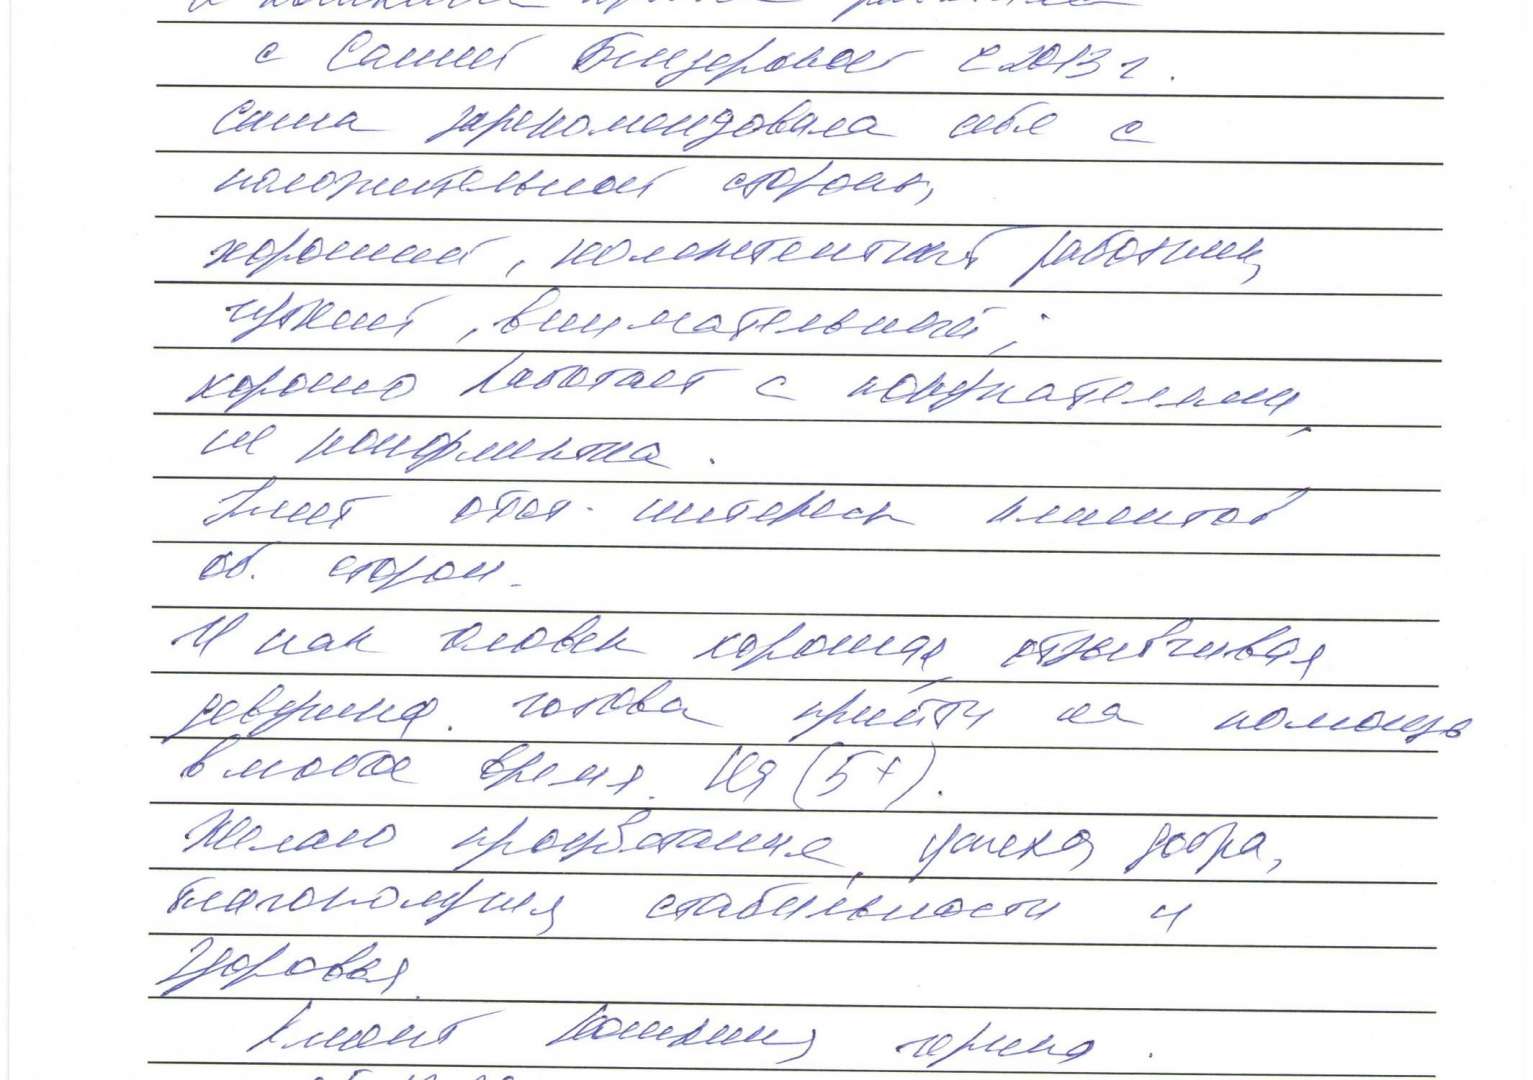 с Сашей Бицеровой с 2013 г.
Саша зарекомендовала себя с
положительной стороны,
хороший, компетентный работник,
чуткий, внимательный;
хорошо работает с покупателями,
не конфликтна.
Умеет отст. интересы клиентов
об. сторон.
И как человек хорошая, отзывчивая
девушка. готова прийти на помощь
в любое время. На (5+).
Желаю процветания, успеха, добра,
благополучия, стабильности и
здоровья.
Клиент